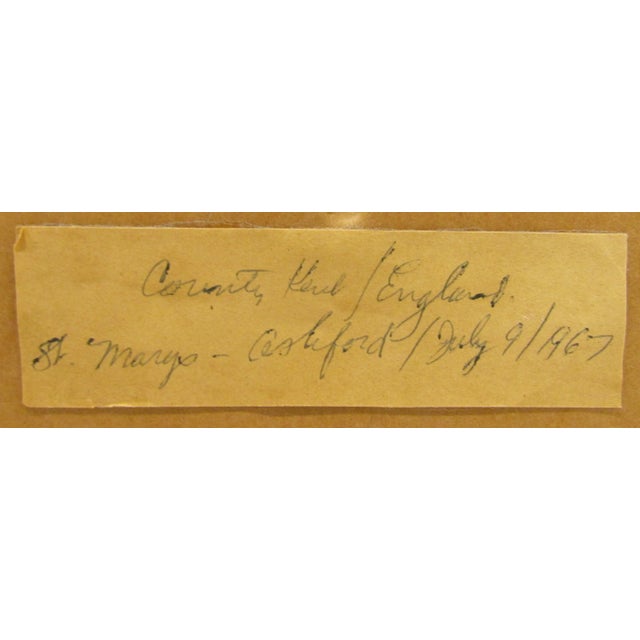 County Kent / England.
St. Marys - Ashford / July 9 / 1967